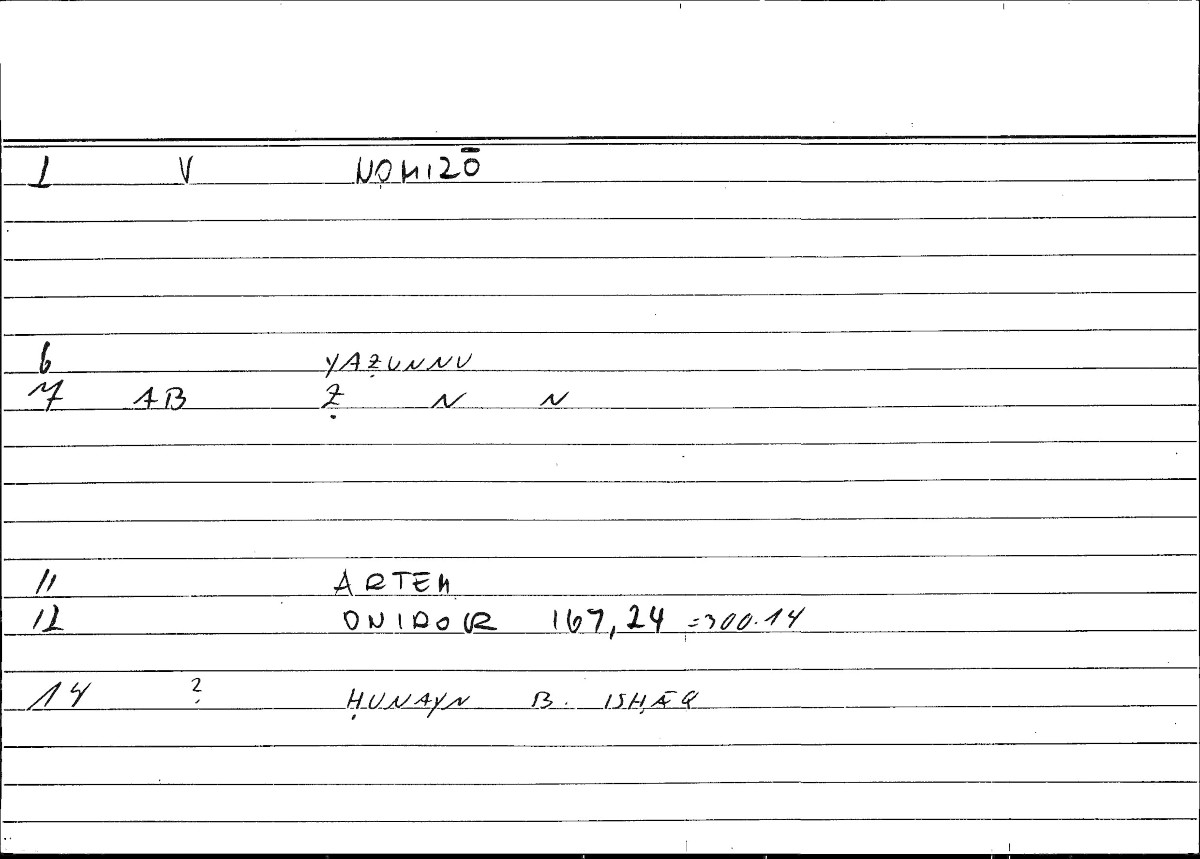 1 V NOMIZŌ
6 YAẒUNNU
7 AB Ẓ N N
11 ARTEM
12 ONIROR 167,24 =300.14
14 ? ḤUNAYN B. ISḤĀQ